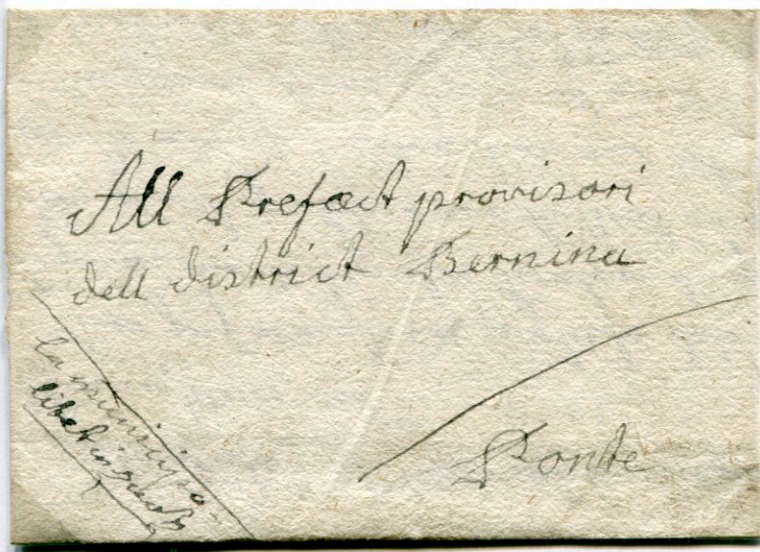 All Prefect provisori
dell district Bernina
Ponte
la municipa-
litet in